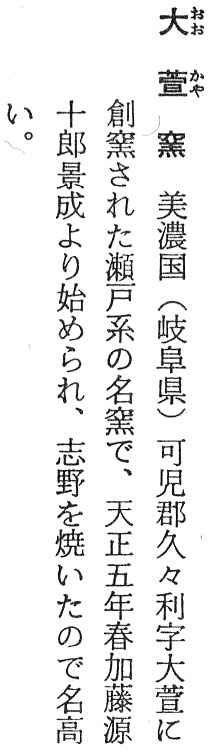 大萱窯　美濃国（岐阜県）可児郡久々利字大萱に
創窯された瀬戸系の名窯で、天正五年春加藤源
十郎景成より始められ、志野を焼いたので名高
い。
おお
かや